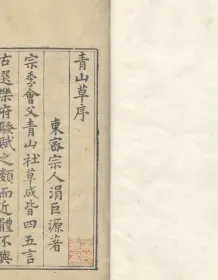 青山草序
東密宗人涓巨源著
宗季會父青山社草成皆四五言
古選樂府騷賦之類而近體不與